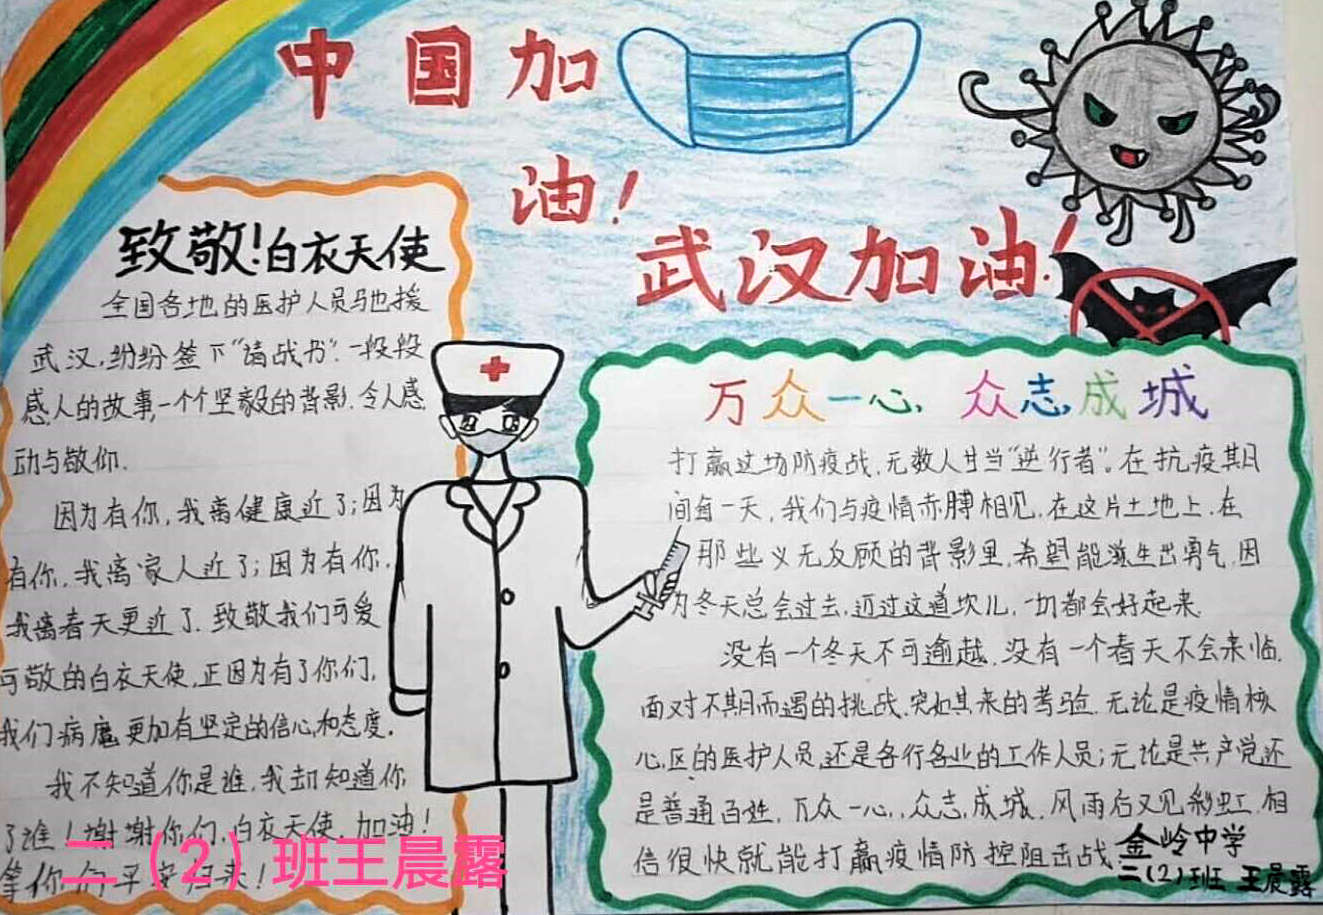 中国加
油！
武汉加油！
致敬！白衣天使
全国各地的医护人员马也援
武汉，纷纷签下“请战书”.一段段
感人的故事，一个个坚毅的背影.令人感
动与敬仰.
因为有你，我离健康近了；因为
有你.我离家人近了；因为有你.
我离春天更近了.致敬我们可爱
可敬的白衣天使，正因为有了你们，
我们病魔更加有坚定的信心和态度.
我不知道你是谁.我却知道你
了谁！谢谢你们.白衣天使.加油！
等你们平安归来！
万众一心，众志成城
打赢这场防疫战.无数人甘当“逆行者”。在抗疫期
间每一天，我们与疫情赤膊相见.在这片土地上.在
那些义无反顾的背影里.希望能滋生出勇气.因
为冬天总会过去.迈过这道坎儿，一切都会好起来.
没有一个冬天不可逾越.没有一个春天不会来临.
面对不期而遇的挑战.突如其来的考验.无论是疫情核
心区的医护人员还是各行各业的工作人员；无论是共产党还
是普通百姓.万众一心，众志成城.风雨后又见彩虹.相
信很快就能打赢疫情防控阻击战.
金岭中学
二（2）班 王晨露
二（2）班王晨露